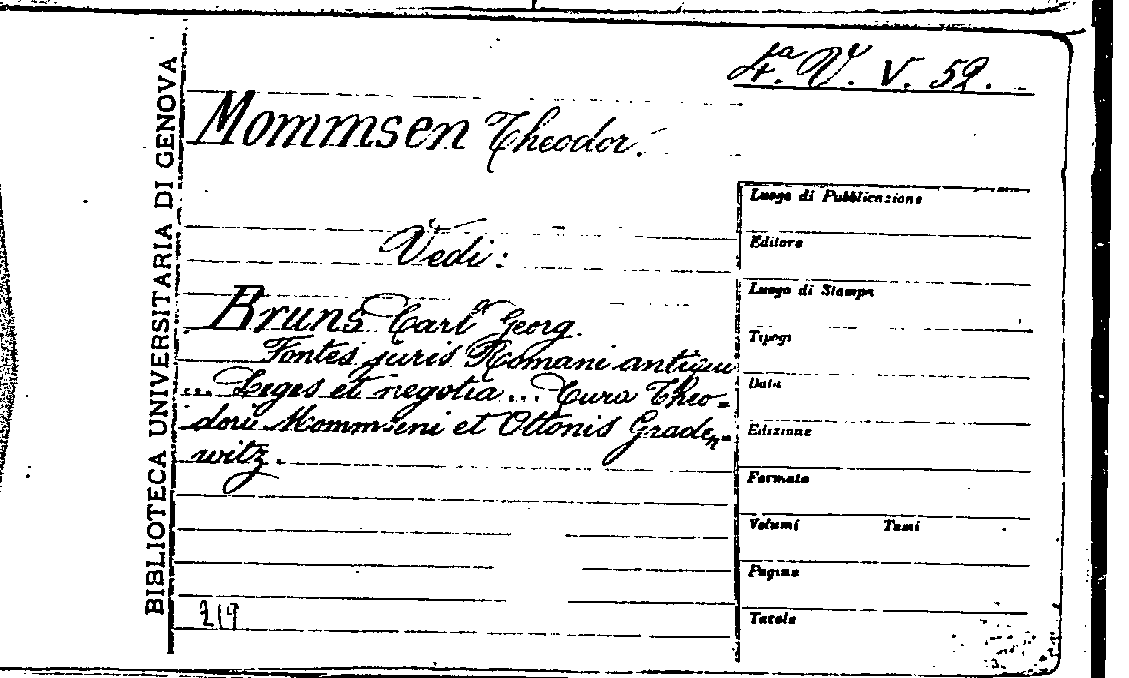 4.a V. V. 52.
BIBLIOTECA UNIVERSITARIA DI GENOVA
Mommsen Theodor.
Vedi:
Bruns Carl Georg.
Fontes juris Romani antiqui
... Leges et negotia... Cura Theo-
dori Mommseni et Ottonis Graden-
witz.
219
Luogo di Pubblicazione
Editore
Luogo di Stampa
Tipogr
Data
Edizione
Formato
Volumi Tomi
Pagine
Tavole